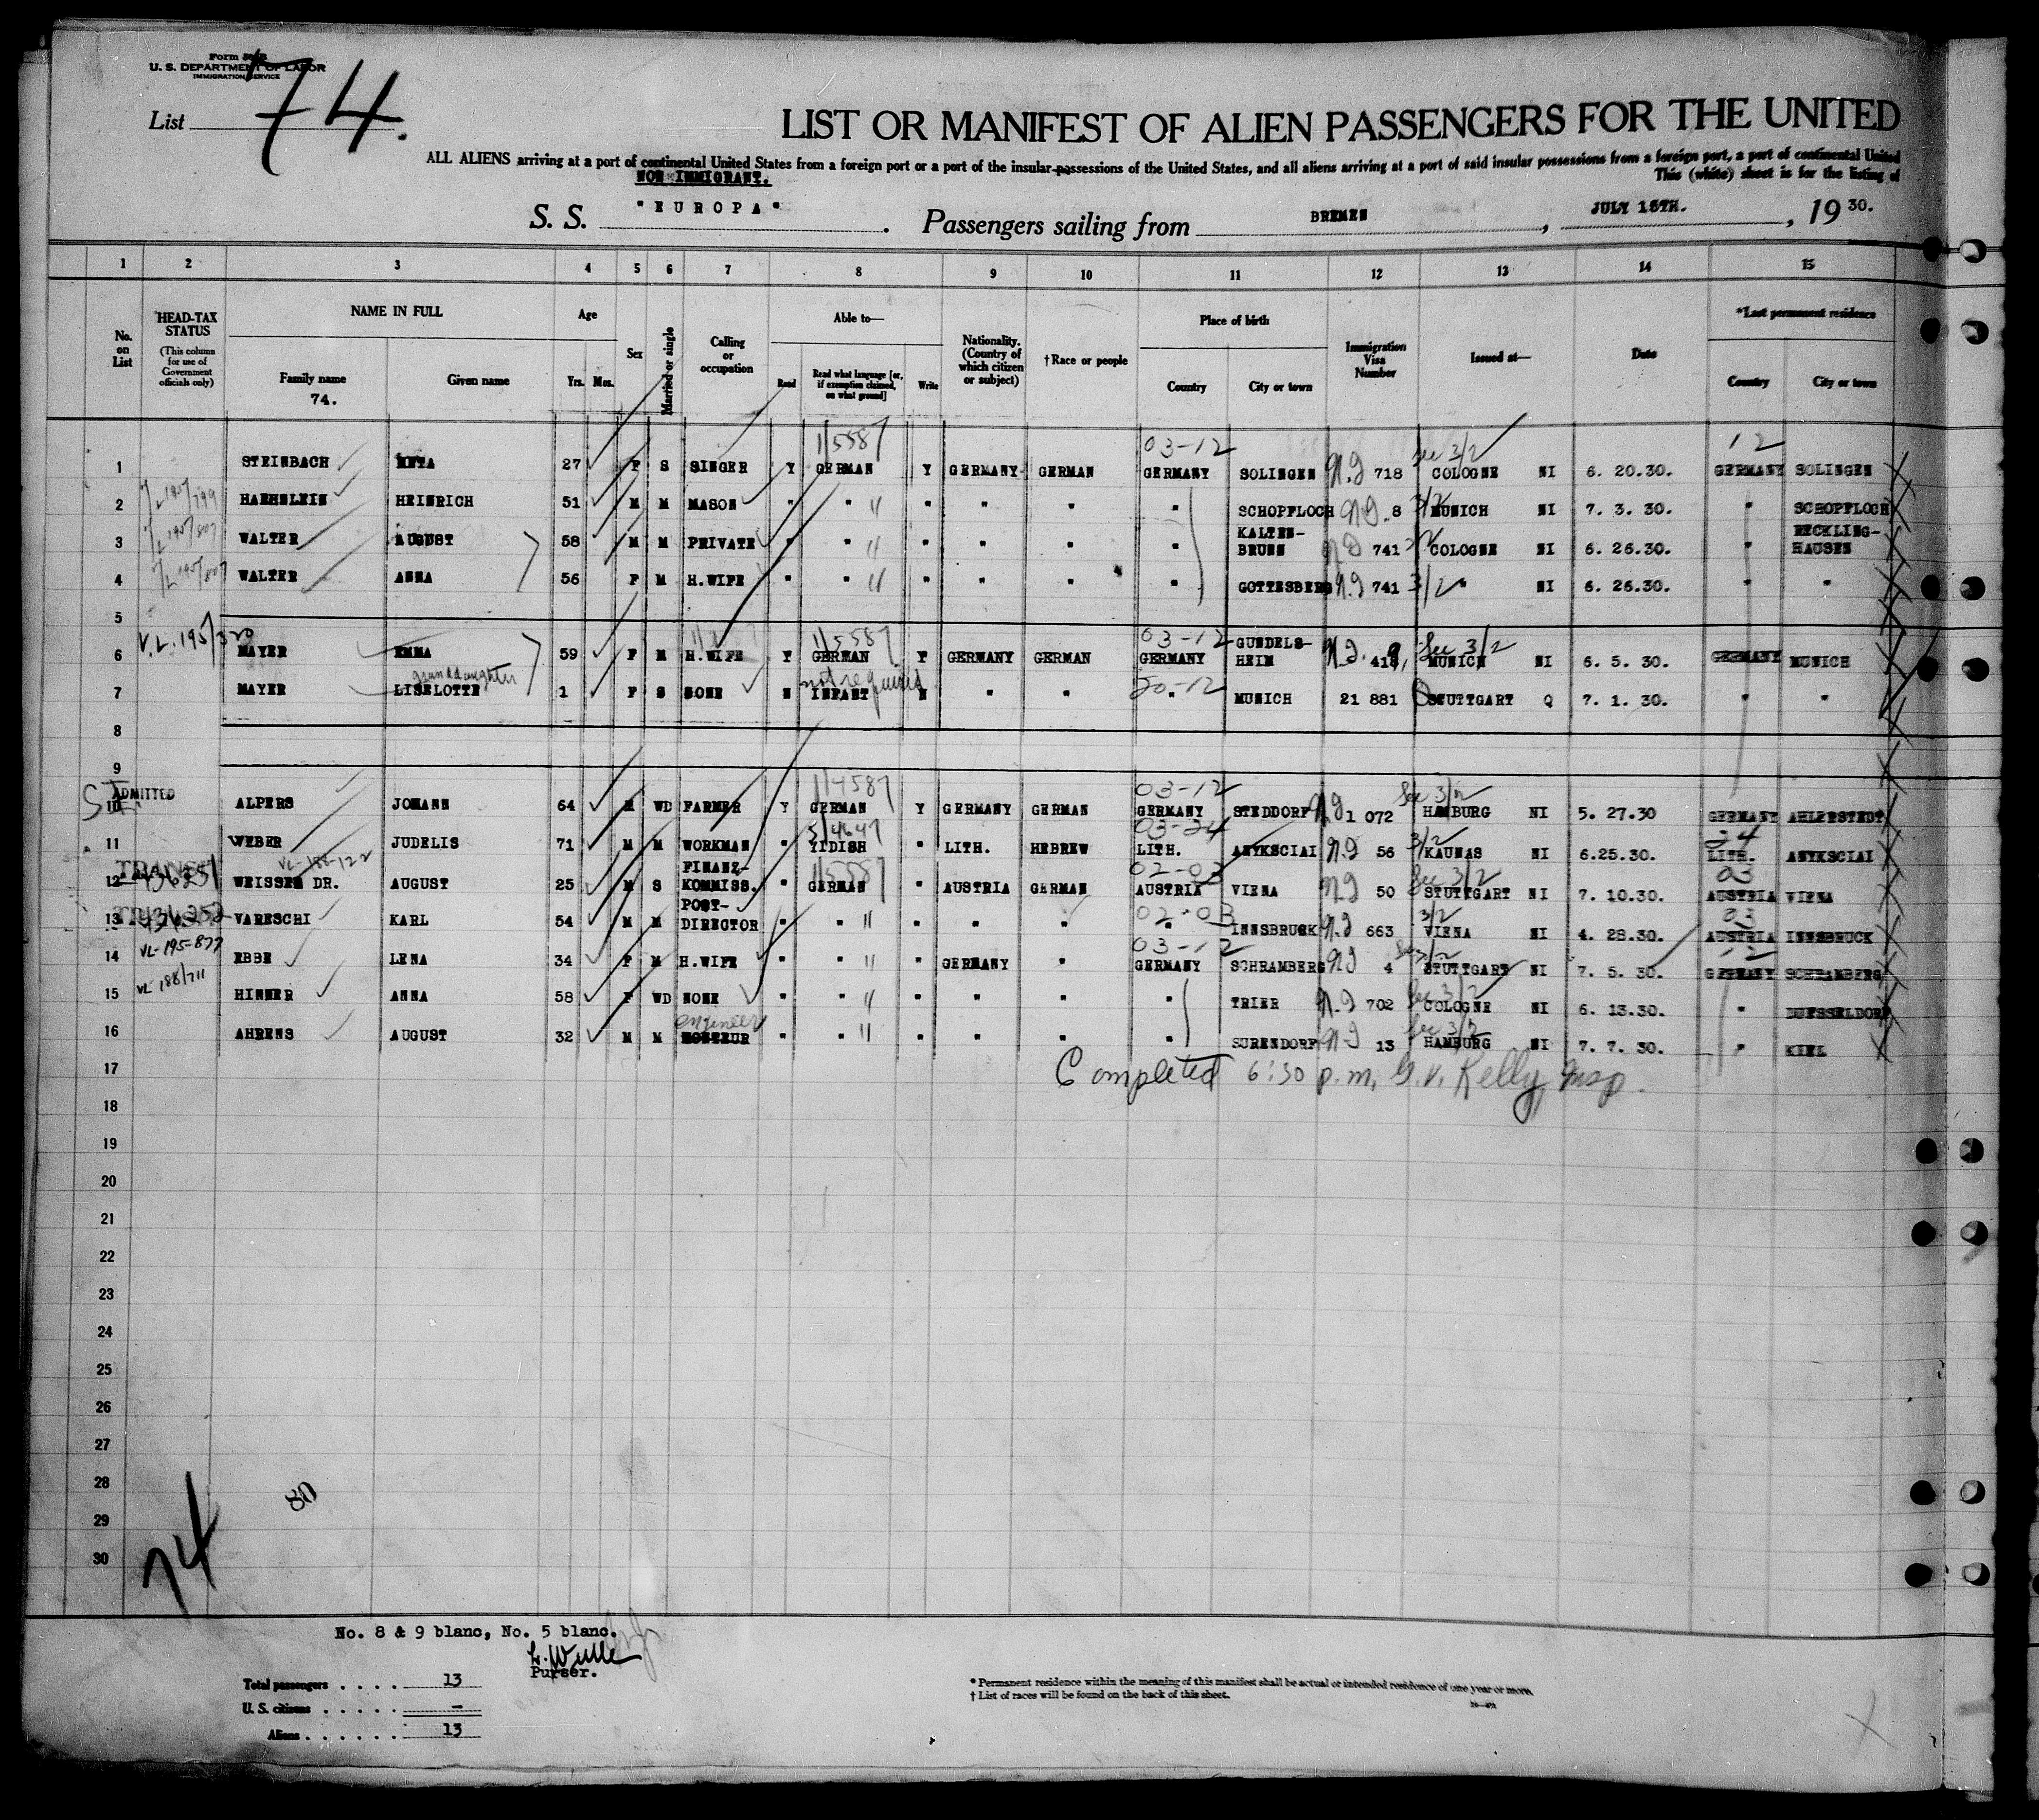 Form
U. S. DEPARTMENT OF LABOR
IMMIGRATION SERVICE
List 74.
LIST OR MANIFEST OF ALIEN PASSENGERS FOR THE UNITED
ALL ALIENS arriving at a port of continental United States from a foreign port or a port of the insular possessions of the United States, and all aliens arriving at a port of said insular possessions from a foreign port, a port of continental United
NON IMMIGRANT.
This (white) sheet is for the listing of
S. S. "EUROPA". Passengers sailing from BREMEN, JULY 15TH., 19 30.
1 2 3 4 5 6 7 8 9 10 11 12 13 14 15
No. on List
HEAD-TAX STATUS (This column for use of Government officials only)
NAME IN FULL Family name 74. Given name
Age Yrs. Mos.
Sex
Married or single
Calling or occupation
Able to— Read Read what language [or, if exemption claimed, on what ground] Write
Nationality. (Country of which citizen or subject)
†Race or people
Place of birth Country City or town
Immigration Visa Number
Issued at—
Date
*Last permanent residence Country City or town
1/5587 03-12 sec 3/2 12
1 STEINBACH META 27 F S SINGER Y GERMAN Y GERMANY GERMAN GERMANY SOLINGEN 718 COLOGNE NI 6. 20.30. GERMANY SOLINGEN
2 HAEHNLEIN HEINRICH 51 M M MASON " " " " " " SCHOPFLOCH 8 3/2 MUNICH NI 7. 3. 30. " SCHOPFLOCH
3 WALTER AUGUST 58 M M PRIVATE " " " " " " KALTEN-BRUNN 741 COLOGNE NI 6. 26.30. " RECKLING-HAUSEN
4 WALTER ANNA 56 F M H.WIFE " " " " " " GOTTESBERG 741 3/2 " NI 6. 26.30. " "
5
V.L. 195/320 1/5587 03-12 Sec 3/2
6 MAYER EMMA 59 F M H.WIFE Y GERMAN Y GERMANY GERMAN GERMANY GUNDELS-HEIM 418, MUNICH NI 6. 5. 30. GERMANY MUNICH
granddaughter not required
7 MAYER LISELOTTE 1 F S NONE N INFANT N " " " MUNICH 21 881 STUTTGART Q 7. 1. 30. " "
8
9
ADMITTED 1/4587 03-12 Sec 3/2
10 ALPERS JOHANN 64 M WD FARMER Y GERMAN Y GERMANY GERMAN GERMANY STEDDORF 1 072 HAMBURG NI 5. 27.30 GERMANY AHLERSTEDT
5/4647 03-24 3/2 24
11 WEBER JUDELIS 71 M M WORKMAN " YIDISH " LITH. HEBREW LITH. ANYKSCIAI 56 KAUNAS NI 6.25.30. LITH. ANYKSCIAI
1/5587 02-03 Sec 3/2 03
12 WEISSEN DR. AUGUST 25 M S FINANZ-KOMMISS. " GERMAN " AUSTRIA GERMAN AUSTRIA VIENA 50 STUTTGART NI 7. 10.30. AUSTRIA VIENA
02-03 3/2 03
13 VARESCHI KARL 54 M M POST-DIRECTOR " " " " " " INNSBRUCK 663 VIENA NI 4. 28.30. AUSTRIA INNSBRUCK
VL-195-877 03-12 12
14 EBBE LENA 34 F M H.WIFE " " " GERMANY " GERMANY SCHRAMBERG 4 STUTTGART NI 7. 5. 30. GERMANY SCHRAMBERG
VL 188/711
15 HINNER ANNA 58 F WD NONE " " " " " " TRIER 702 COLOGNE NI 6. 13.30. " DUESSELDORF
engineer Sec 3/2
16 AHRENS AUGUST 32 M M MONTEUR " " " " " " SURENDORF 13 HAMBURG NI 7. 7. 30. " KIEL
17
Completed 6:30 p.m. G.V. Kelly, Insp.
18
19
20
21
22
23
24
25
26
27
28
29
30
80
74
No. 8 & 9 blanc, No. 5 blanc.
Purser.
Total passengers . . . . 13
U. S. citizens . . . . . —
Aliens . . . . . . 13
* Permanent residence within the meaning of this manifest shall be actual or intended residence of one year or more.
† List of races will be found on the back of this sheet.